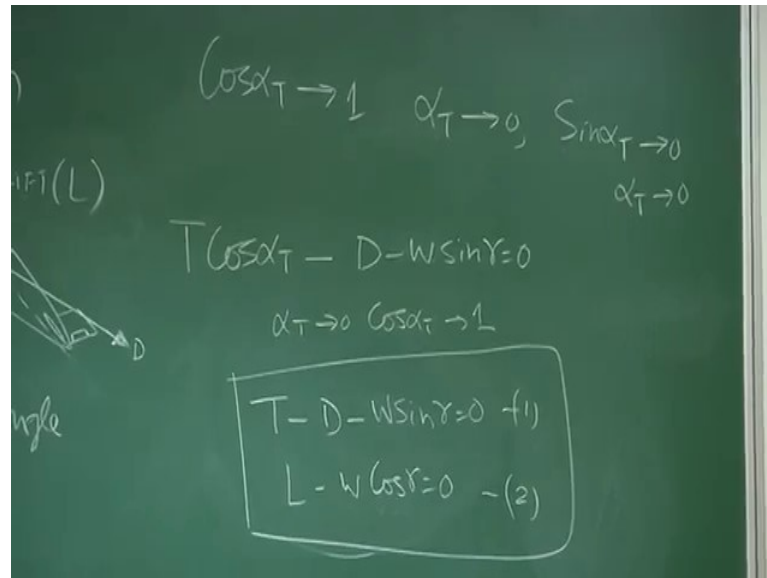 Cosα_T → 1   α_T → 0,   Sinα_T → 0
α_T → 0
(L)
T Cosα_T − D − W sin γ = 0
α_T → 0   Cosα_T → 1
D
T − D − W sin γ = 0 −(1)
L − W Cos γ = 0 −(2)